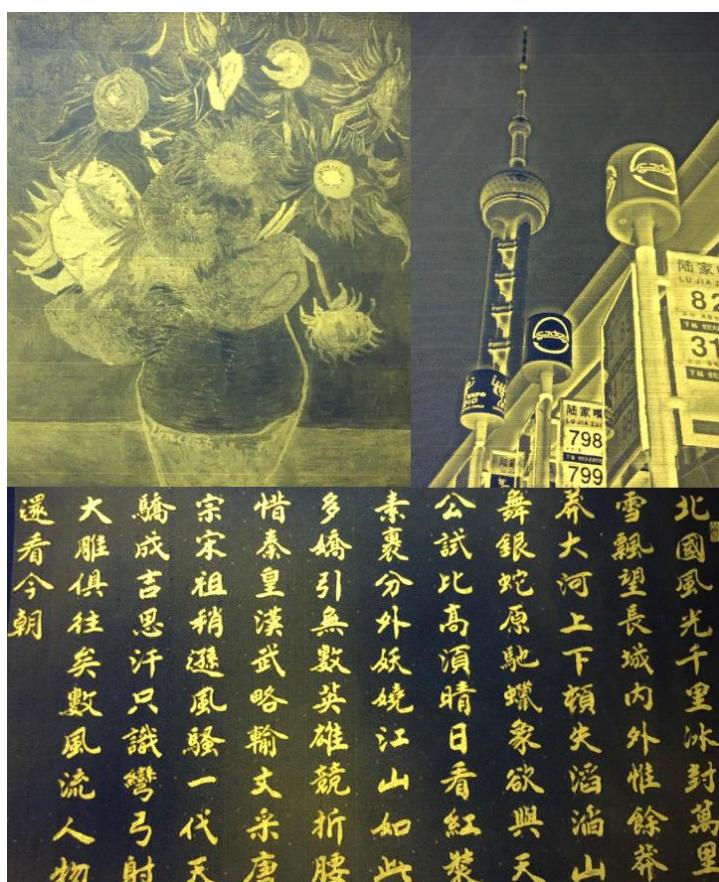 陆家
LU JIA
82
31
下站
陆家嘴
LU JIA ZUI
798
799
陆家
北國風光千里冰封萬里
雪飄望長城内外惟餘莽
莽大河上下頓失滔滔山
舞銀蛇原馳蠟象欲與天
公試比高須晴日看紅裝
素裹分外妖嬈江山如此
多嬌引無數英雄競折腰
惜秦皇漢武略輸文采唐
宗宋祖稍遜風騷一代天
驕成吉思汗只識彎弓射
大雕俱往矣數風流人物
還看今朝